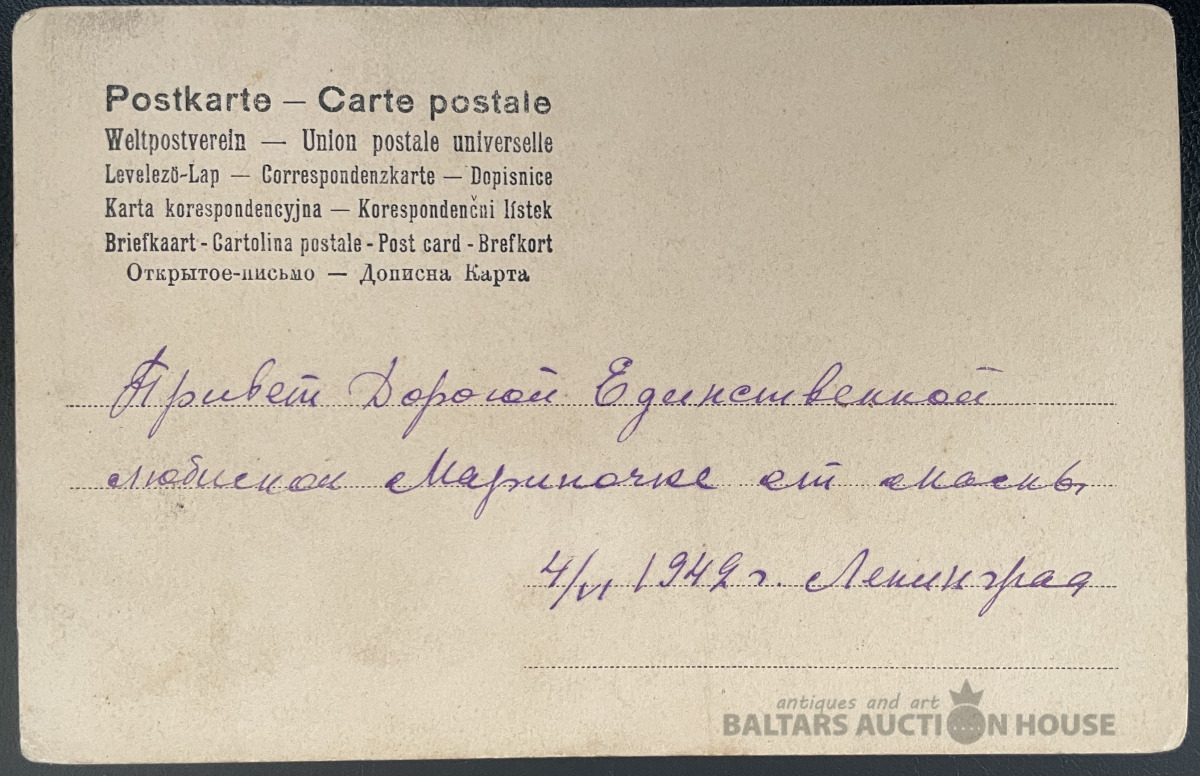 Postkarte — Carte postale
Weltpostverein — Union postale universelle
Levelező-Lap — Correspondenzkarte — Dopisnice
Karta korespondencyjna — Korespondenčni lístek
Briefkaart - Cartolina postale - Post card - Brefkort
Открытое-письмо — Дописна Карта
Привет Дорогой Единственной
любимой Мариночке от мамы
4/VI 1949 г. Ленинград
antiques and art
BALTARS AUCTION HOUSE